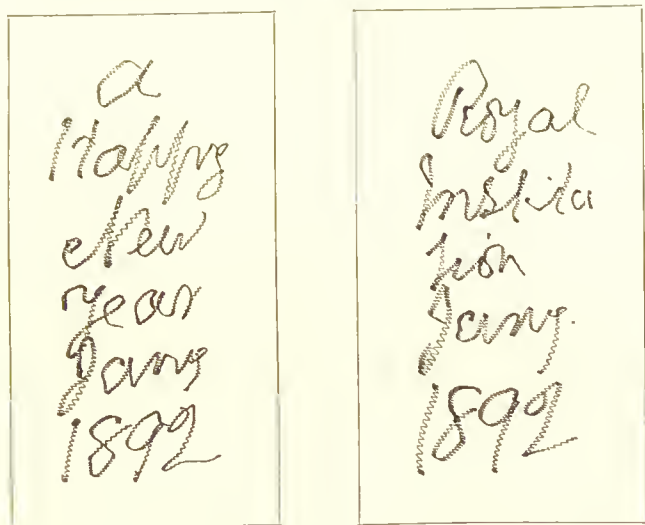 a
Happy
New
Year
Jany
1892
Royal
Institu
tion
Jany.
1892